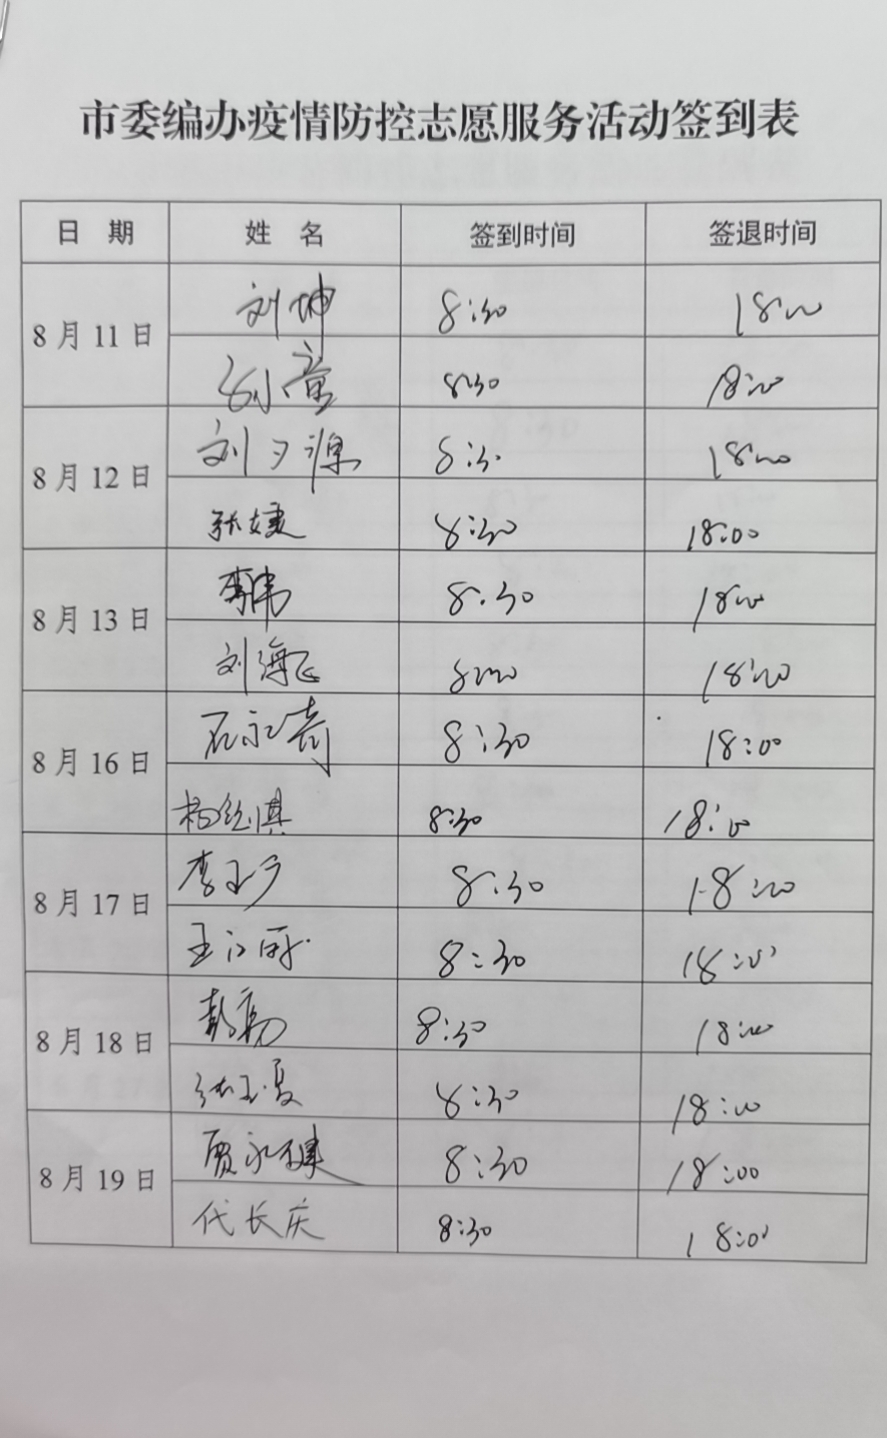 市委编办疫情防控志愿服务活动签到表
日 期 姓 名 签到时间 签退时间
8月11日 刘坤 8:30 18:00
8:30 18:00
8月12日 刘夕源 8:30 18:00
张婕 8:30 18:00
8月13日 李伟 8:30 18:00
刘海飞 8:30 18:00
8月16日 石永奇 8:30 18:00
8:30 18:00
8月17日 李玉 8:30 18:00
王 8:30 18:00
8月18日 8:30 18:00
张玉夏 8:30 18:00
8月19日 贾永健 8:30 18:00
代长庆 8:30 18:00